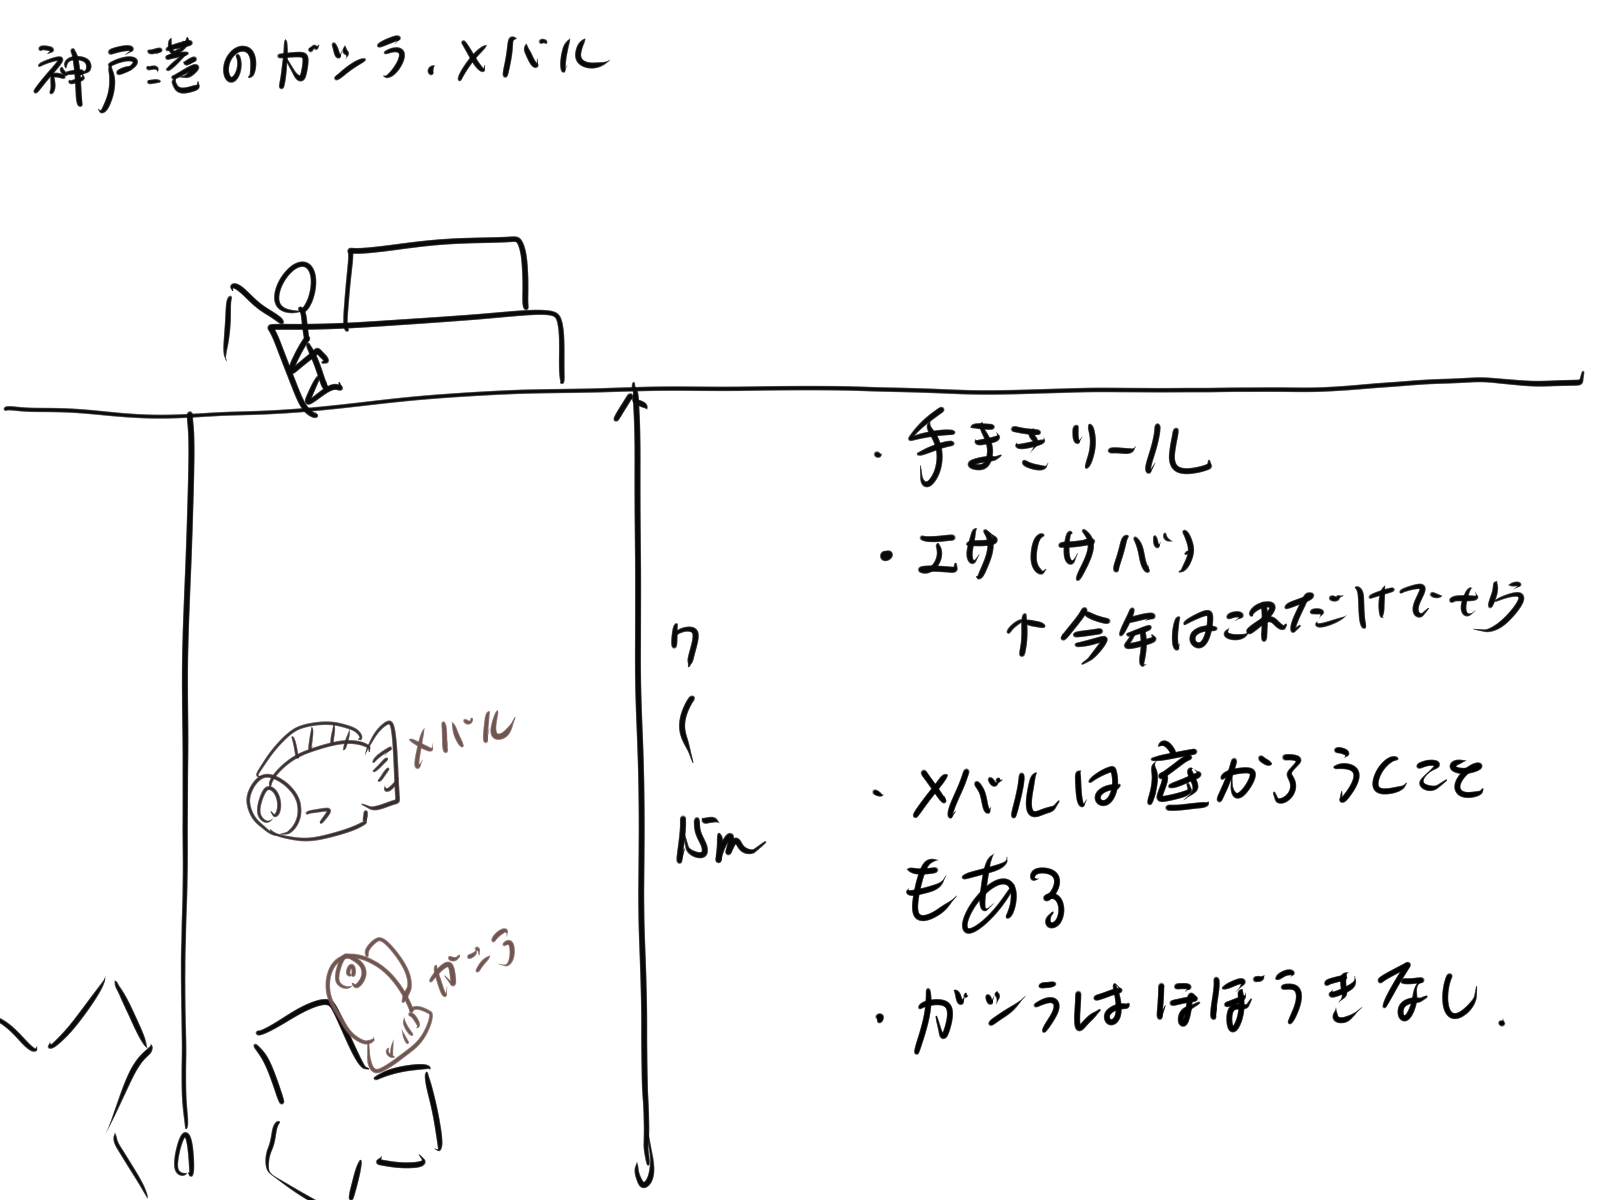 神戸港のガシラ.メバル
・手まきリール
・エサ(サバ)
↑今年はこれだけでせら
7
〜
15m
メバル
・メバルは底からうくこと
もある
ガシラ
・ガシラはほぼうきなし.